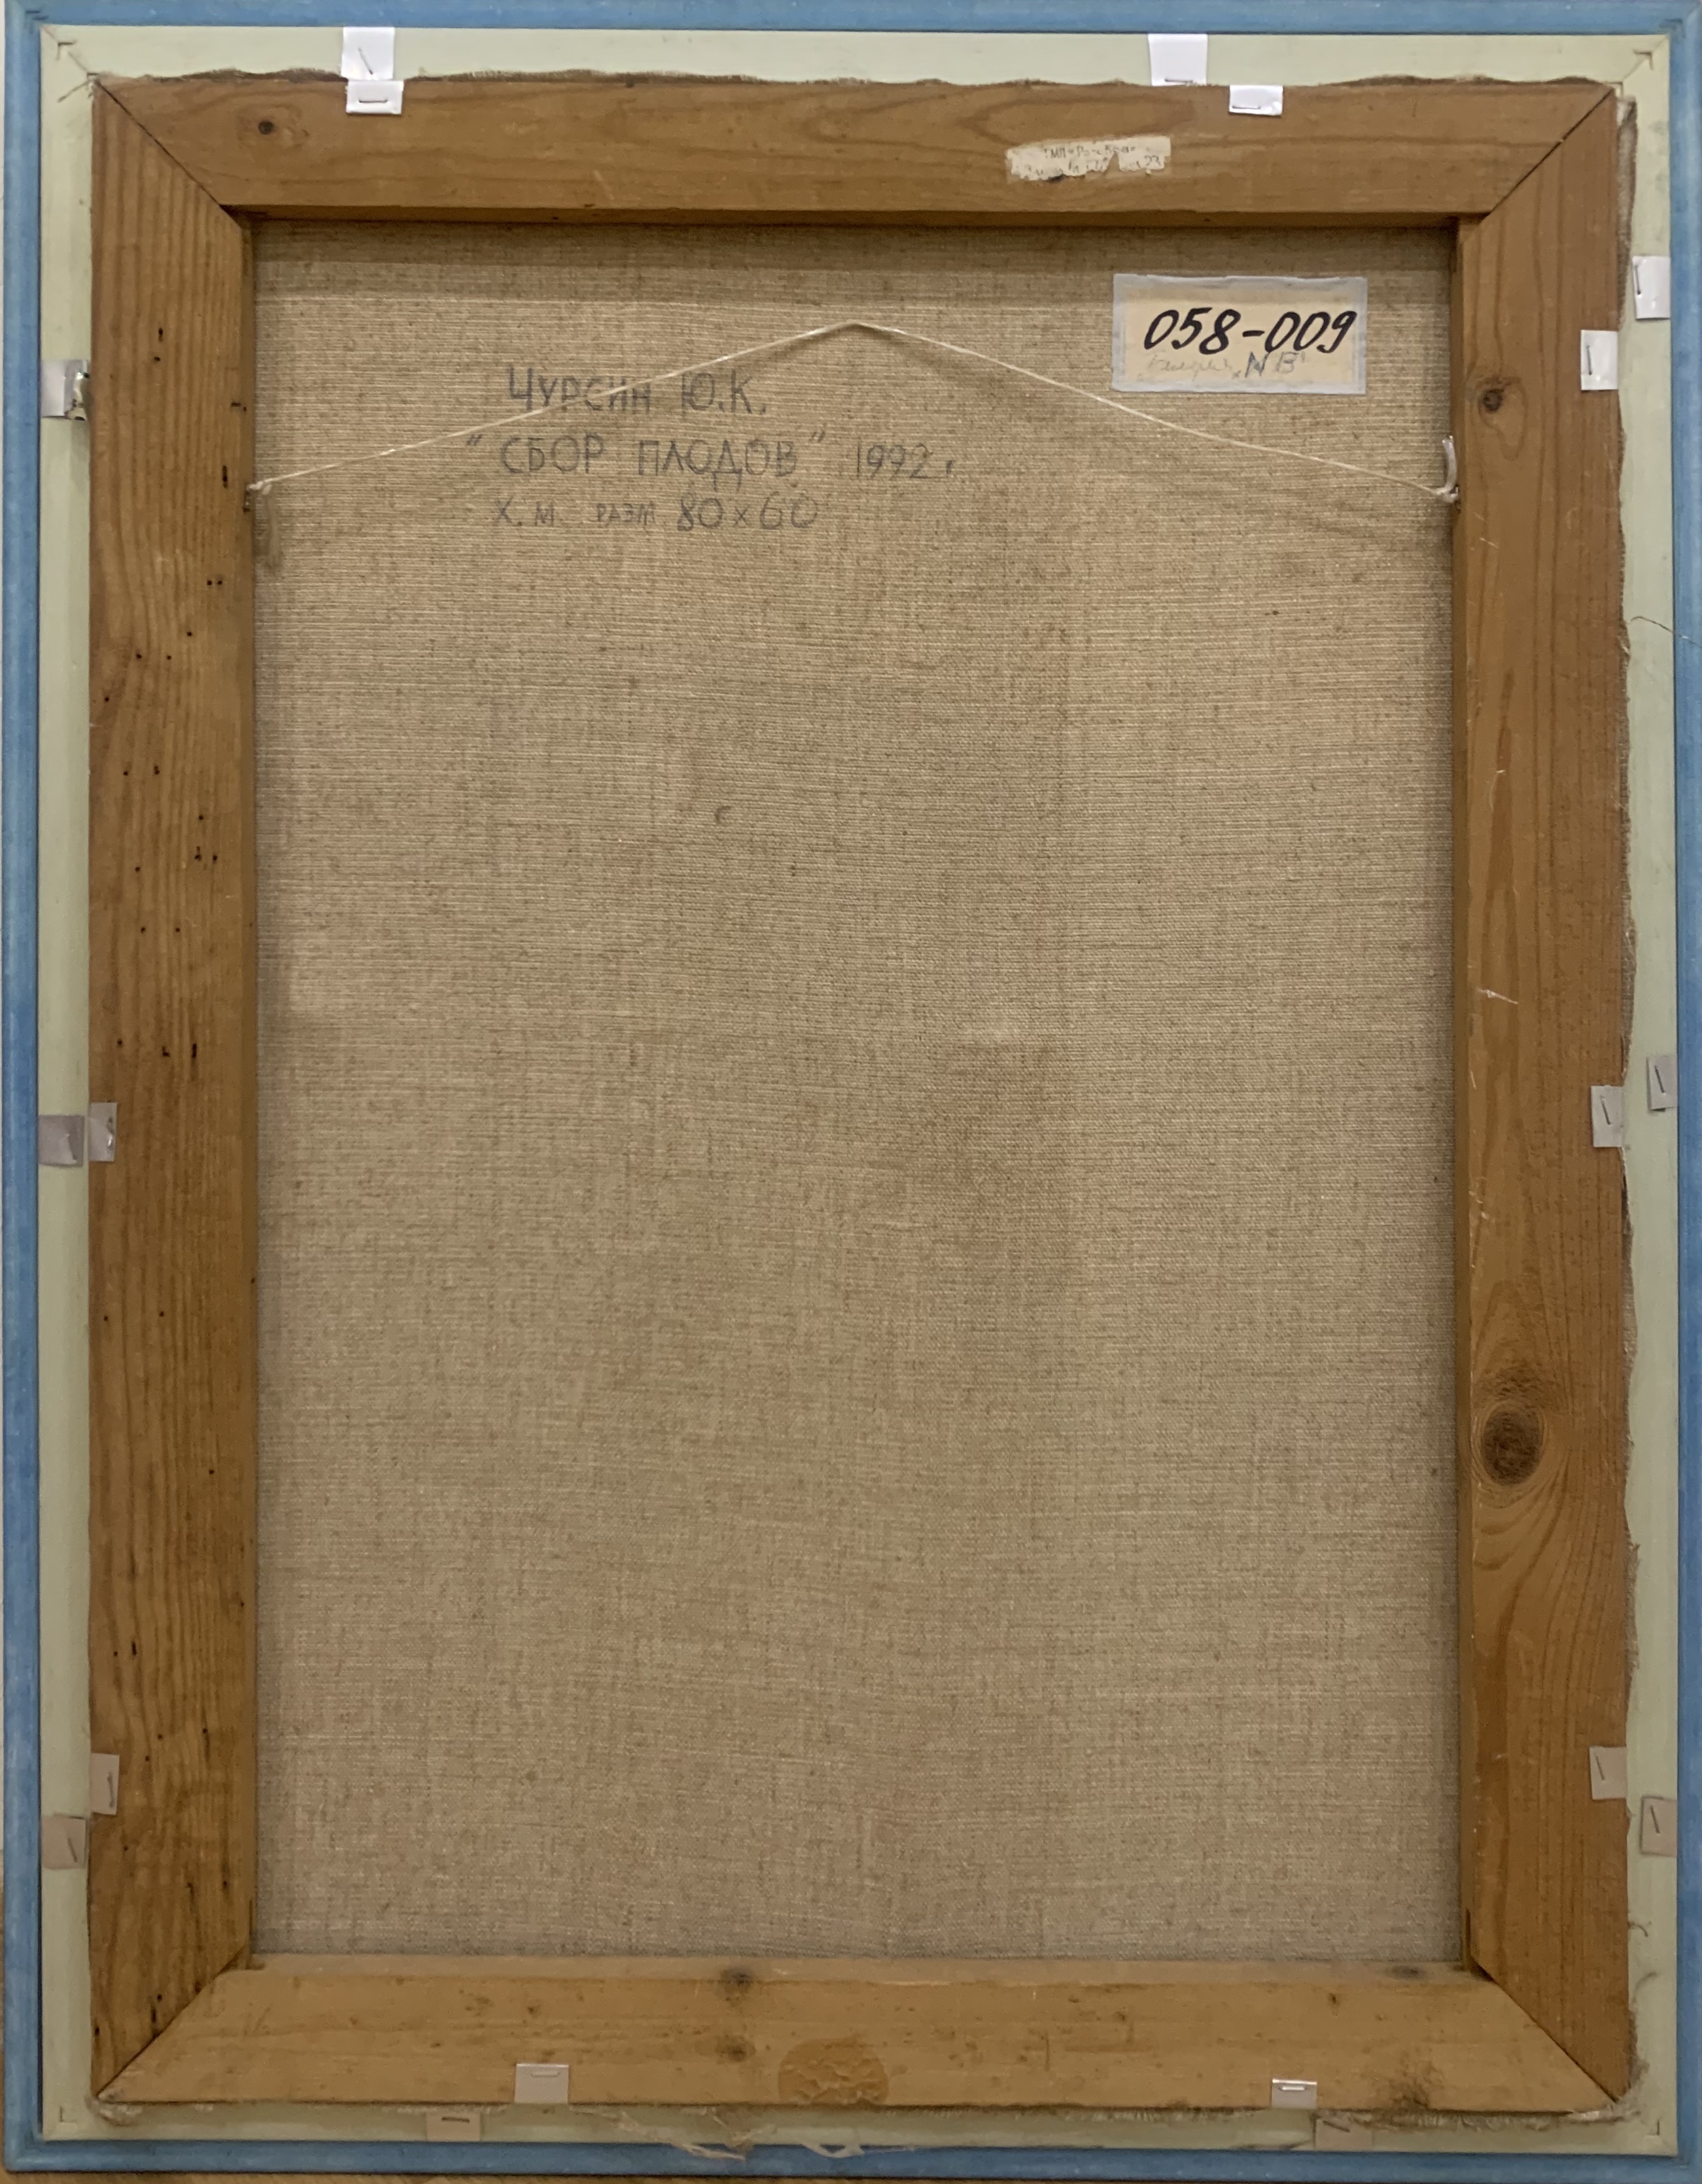 058-009
„NB"
Чурсин Ю.К.
"СБОР ПЛОДОВ" 1992г.
Х.М. РАЗМ 80×60